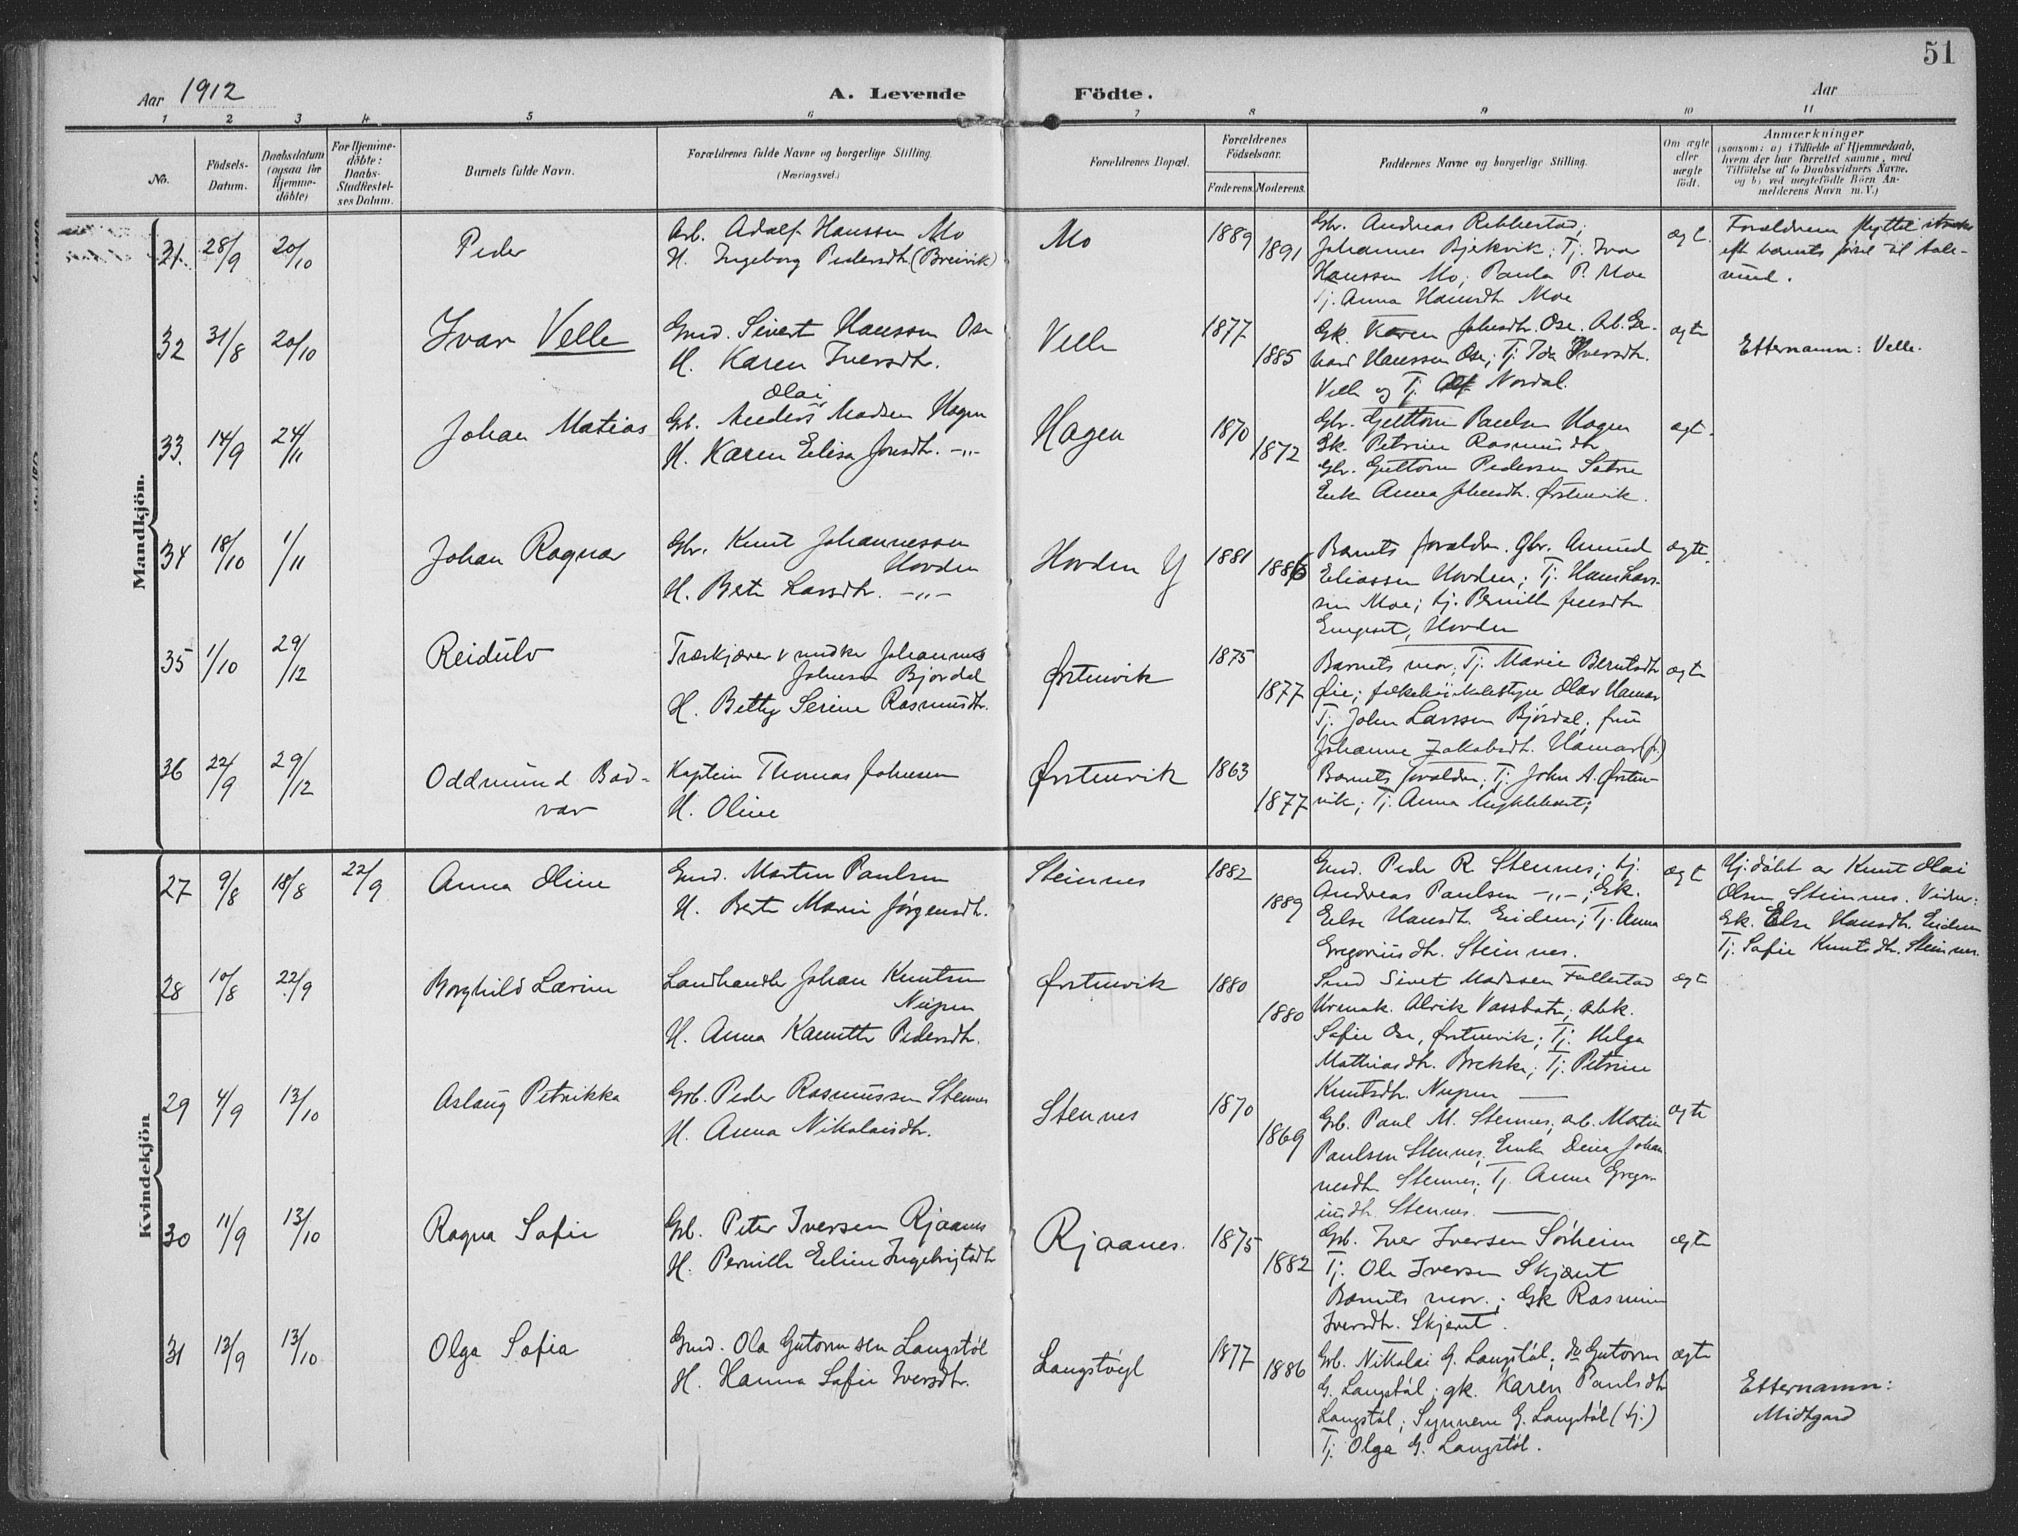 51
Aar 1912
A. Levende
Födte.
Aar
1 2 3 4 5 6 7 8 9 10 11
No.
Födsels-
Datum.
Daabsdatum
(ogsaa for
Hjemme-
döbte)
For Hjemme-
döbte:
Daabs-
Stadfæstel-
ses Datum.
Barnets fulde Navn.
Forældrenes fulde Navne og borgerlige Stilling.
(Næringsvei.)
Forældrenes Bopæl.
Forældrenes
Födselsaar.
Faderens. Moderens.
Faddernes Navne og borgerlige Stilling.
Om ægte
eller
uægte
födt.
Anmærkninger
(saasom: a) i Tilfælde af Hjemmedaab,
hvem der har forrettet samme, med
Tilföielse af to Daabsvidners Navne,
og b) ved uægtefödte Börn An-
melderens Navn m. V.)
Mandkjön.
31 28/9 20/10
Peder
Arb. Adolf Hanssen Mo
H. Ingeborg Pedersdtr (Breivik)
Mo
1889 1891
Gbr. Andreas Ribbestad;
Johannes Bjekvik; Tj. Ivar
Hanssen Mo; Paula P. Moe
Tj. Anna Hansdtr Moe
ægt.
Forældrene flyttet straks
eft barnets føsel til Aale-
sund.
32 31/8 20/10
Ivar Velle
Gmd. Sivert Hanssen Ose
H. Karen Iversdtr.
Velle
1877 1885
Gk. Karen Johsdtr. Ose. Arb. Ge-
hard Hanssen Ose; Tj. Ida Iversdtr.
Velle og Tj. Alf Nordal.
ægte
Etternamn: Velle.
33. 14/9 24/11
Johan Matias
Olai
Gb. Anders Madsen Hagen
H. Karen Elisa Jonsdtr. -"-
Hagen
1870 1872
Gbr. Guttorm Paulsen Hagen
Gk. Petrine Rasmusdtr
Gbr. Guttorm Pedersen Sætre
Enk. Anna Johnsdtr. Ørstenvik.
ægt.
34 18/10 1/11
Johan Ragnar
Gbr. Knut Johannessen
Hovden
H. Berte Larsdtr. -"-
Hovden Y
1881 1886
Barnets forældre. Gbr. Amund
Eliassen Hovden; Tj. Hans Lars-
sen Moe; tj. Pernille Jensdtr
Engeset, Hovden
ægte.
35 1/10 29/12
Reidulv
Træskjærer v snidker Johannes
Johnsen Bjørdal
H. Betty Serine Rasmusdtr.
Ørstenvik
1875 1877
Barnets mor; Tj. Marie Berntsdtr
Øie; folkehöiskolebstyrer Olav Hamar
Tj. John Larssen Bjórdal, fru
Johanne Jakobsdtr. Hamar (fr)
ægte
36 22/9 29/12
Oddmund Bod-
var
Kaptein Thomas Johnsen
H. Oline
Ørstenvik
1863 1877
Barnets forældre; Tj. John A. Ørsten-
vik; Tj. Anna Myklebust;
Kvindekjön
27 9/8 18/8 22/9
Anna Oline
Gmd. Martin Paulsen
H. Berte Marie Jørgensdtr.
Steinnes
1882 1889
Gmd. Peder R Stennes; tj.
Andreas Paulsen -"-; Gk.
Else Hansdtr. Eidem; Tj. Anna
Gregoriusdtr. Steinnes.
ægt
Hj. döbt av Knut Olai
Olsen Steinnes. Vidner:
Gk. Else Hansdtr. Eidem
Tj. Sofie Knutsdtr. Steinnes.
28 10/8 22/9
Borghild Lavine
Landhandler Johan Knutsen
Nupen
H. Anna Kanutte Pedersdtr.
Ørstenvik
1880 1880
Smed Sivert Madssen Follestad
Urmak. Alvik Vassbotn; abk.
Sofie Ose, Ørstenvik; Tj. Helga
Mathiasdtr. Brekke; Tj. Petrine
Knutsdtr. Nupen
ægt
29 4/9 13/10
Aslaug Petrikka
Grb. Peder Rasmussen Stennes
H. Anna Nikolaisdtr.
Stennes
1870 1869
Grb. Paul M. Stennes, arb. Martin
Paulsen Stennes, Enke Dina Johan
nesdtr Stennes; Tj. Anna Gregor-
iusdtr. Stennes.
ægte
30 11/9 13/10
Ragna Sofie
Grb. Peter Iversen Rjaanes
H. Pernille Eline Ingebrigtsdtr
Rjaanes.
1875 1882
Grb. Iver Iversen Sørheim
Tj. Ole Iversen Skjæret
Barnets mor.; Gk Rasmine
Iversdtr. Skjeret.
ægte
31 13/9 13/10
Olga Sofia
Gmd. Ola Gutormsen Langstøl
H. Hanna Sofie Iversdtr.
Langstöyl
1877 1886
Grb. Nikolai G. Langstöl; do Gutorm
G. Langstöl; gk. Karen Paulsdtr
Langstöl; Synneve G. Langstöl (tj.)
Tj. Olga G. Langstöl.
ægte
Etternamn:
Midtgard